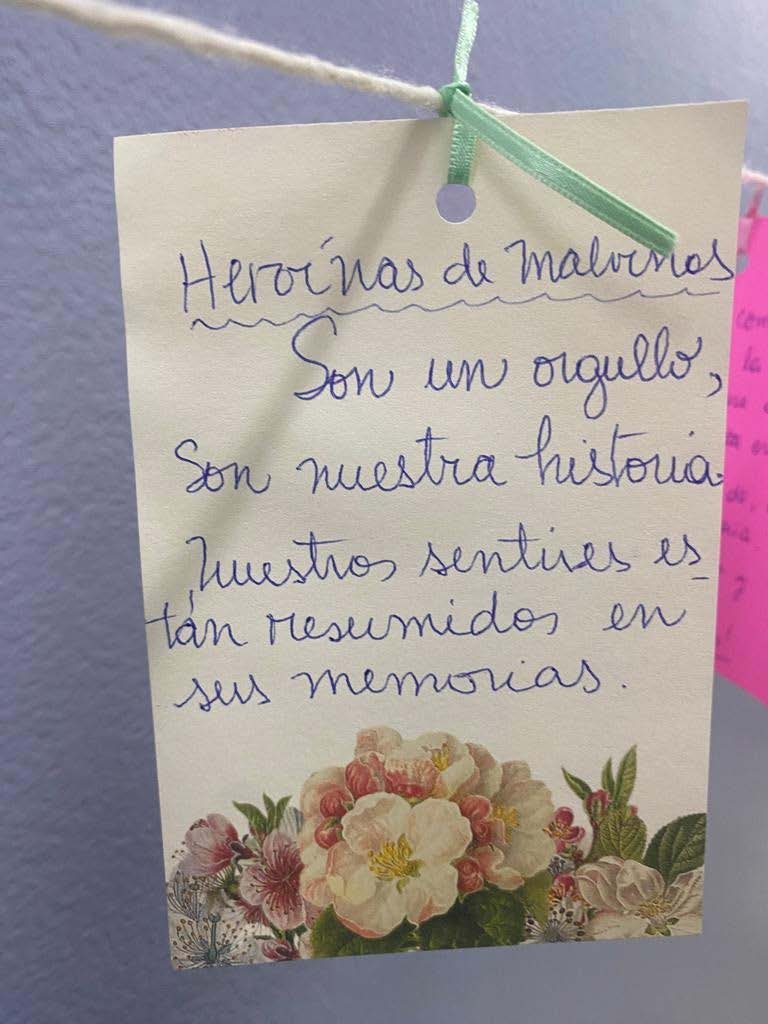 Heroínas de Malvinas
Son un orgullo,
Son nuestra historia.
Nuestros sentires es
tán resumidos en
sus memorias.